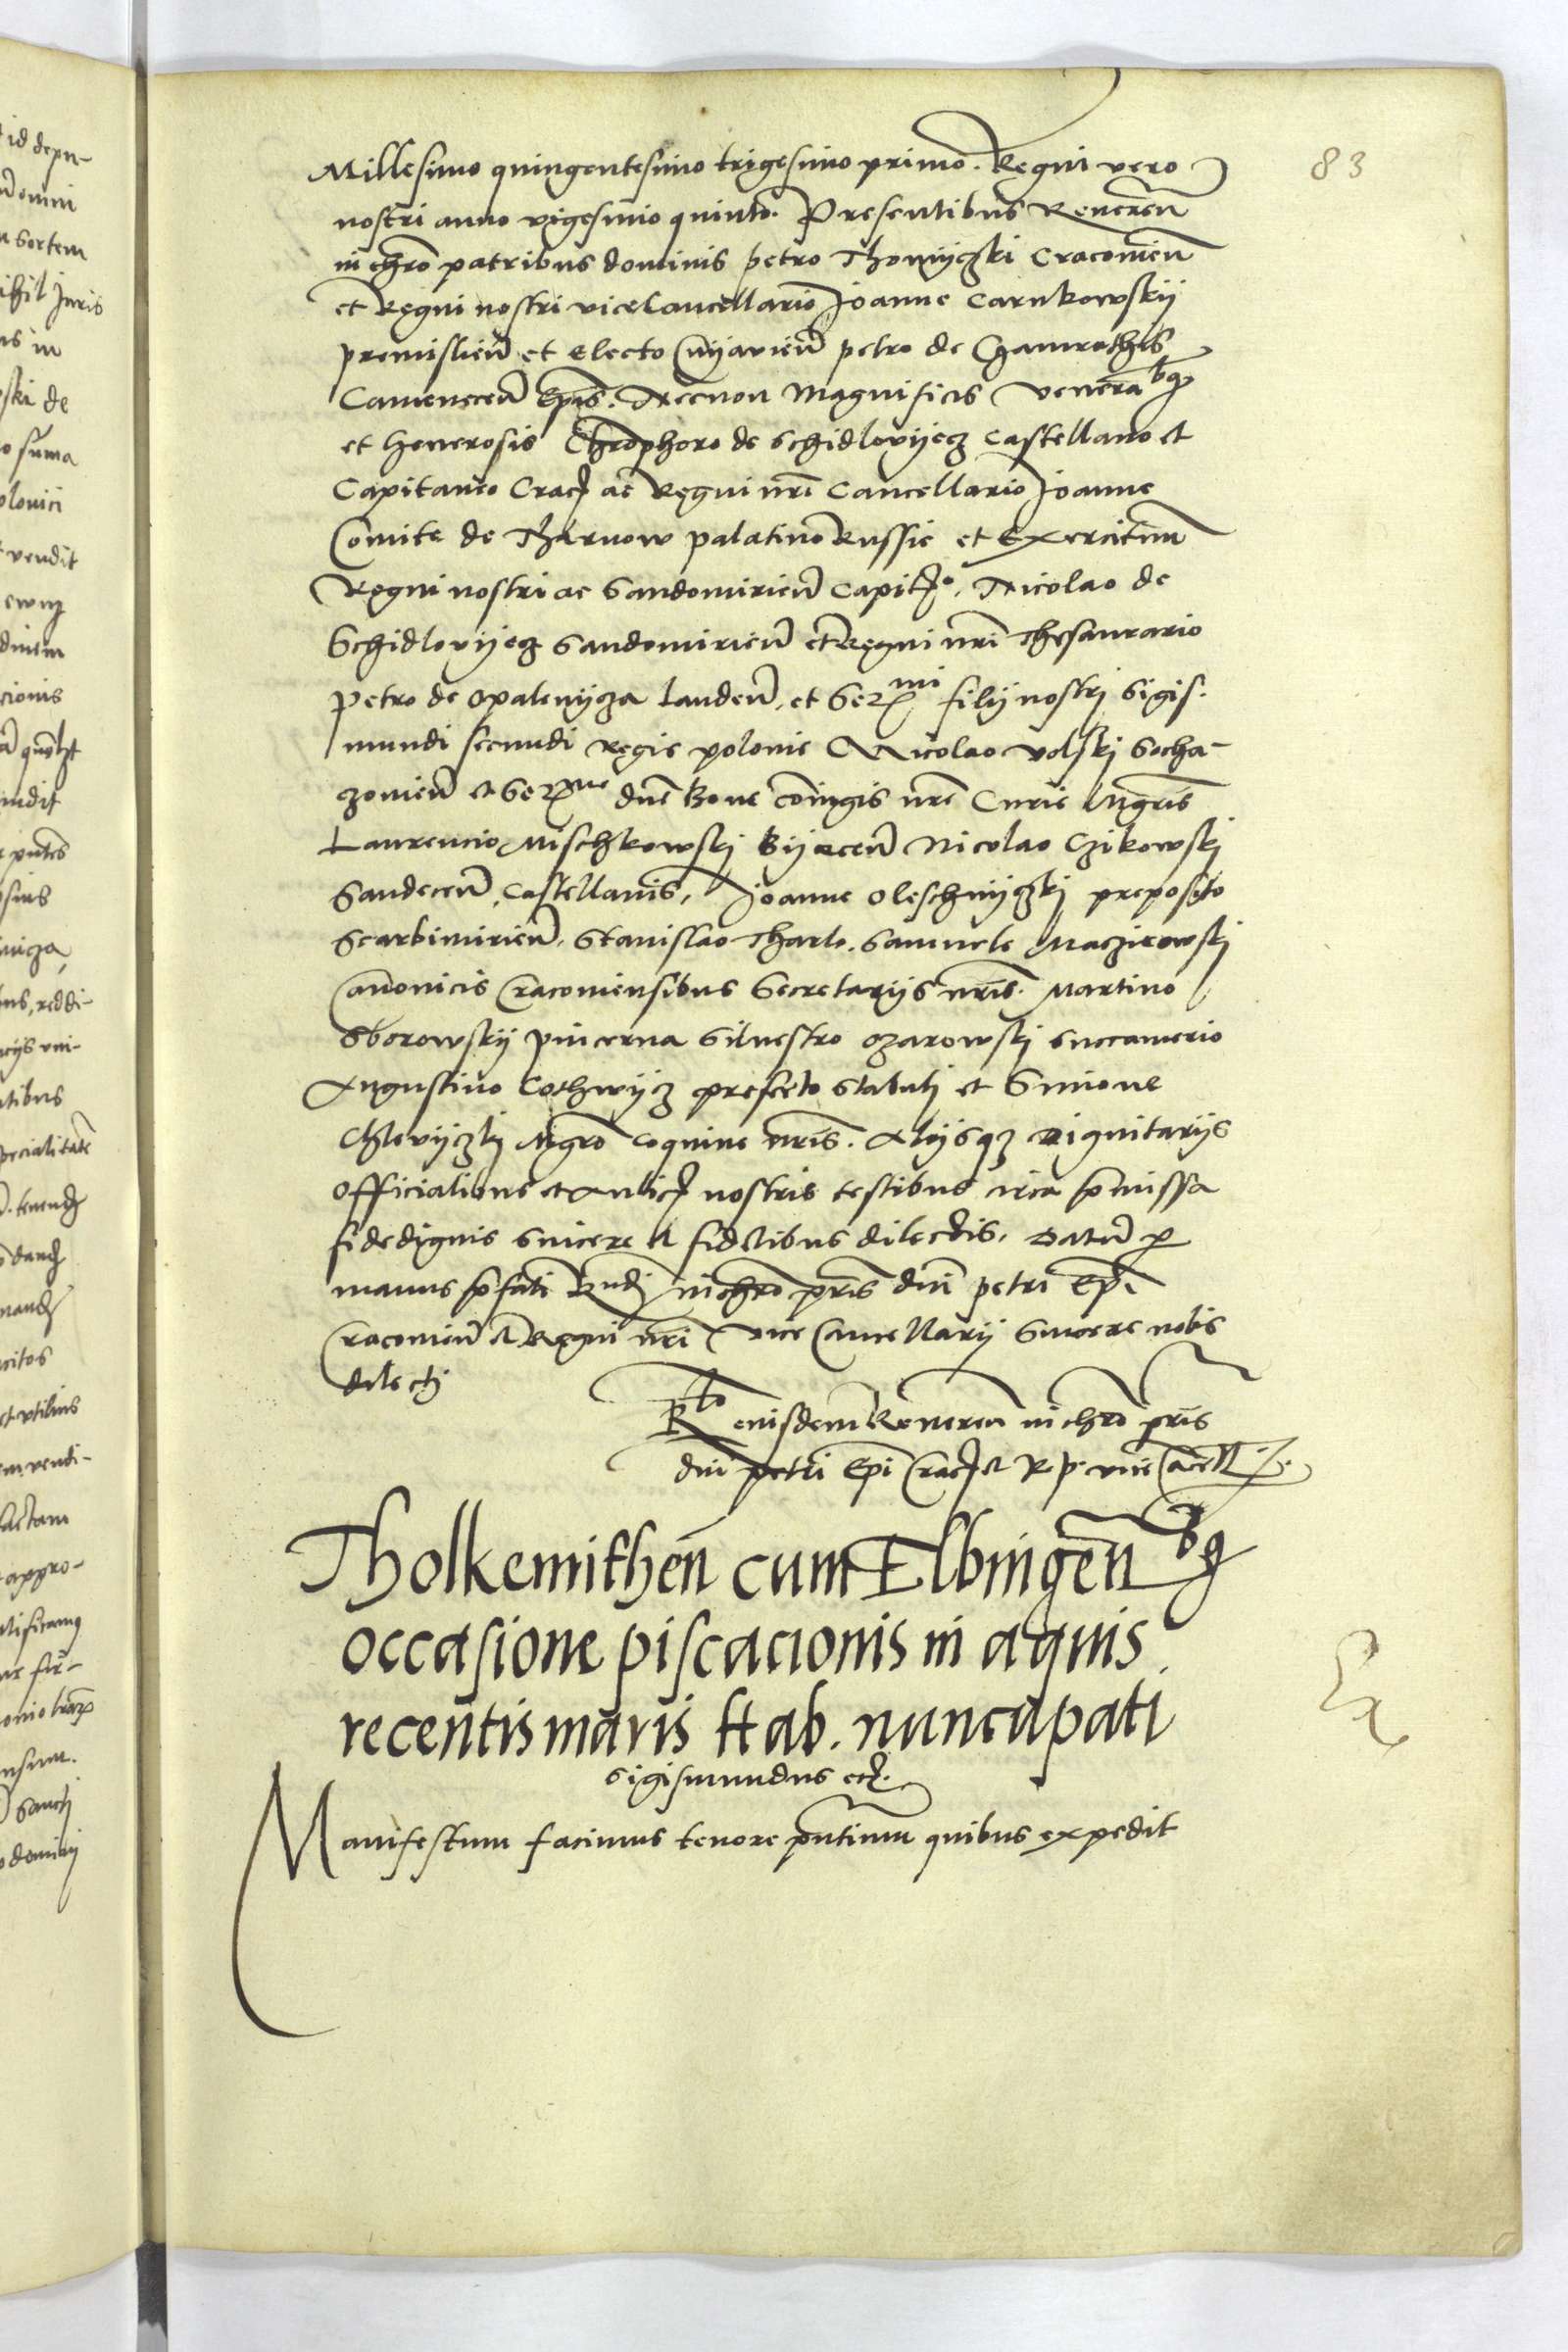 83
Millesimo quingentesimo trigesimo primo. Regni vero
nostri anno vigesimo quinto. Presentibus Reveren̄
in chr̄o patribus dominis petro Thomyczki Cracovien̄
et Regni nostri vicecancellario Joanne Carnkowskij
premislien̄ et electo Cuyavien̄ petro de Gamrathis
Camenecen̄ Ep̄is. Necnon Magnificis venera bq3
et Generosis Chr̄ophoro de Schidlovijecz Castellano et
Capitaneo Crac̄ ac Regni nr̄i Cancellario Joanne
Comite de Tharnow palatino Russie et Exercituum
Regni nostri ac Sandomirien̄ Capit̄o. Nicolao de
Schidlovijecz Sandomirien̄ et Regni nr̄i Thesaurario
Petro de Opalenijcza Landen̄. et Ser mi filij nostri Sigis.
mundi secundi Regis polonie Nicolao Volski Socha-
czovien̄ et Ser me dn̄e Bone coniugis nr̄e Curie Mgr̄is
Laurencio Mischkowskj Bijecen̄ Nicolao Czikowskj
Sandecen̄ Castellanis, Joanne Oleschnijczkj preposito
Scarbimirien̄. Stanislao Tharlo. Samuele Maczieowskj
Canonicis Cracoviensibus Secretarijs nr̄is. Martino
Sborowskij pincerna Silvestro Ozarowskj succamerio
Augustino Cothwijcz prefecto stabulj et Simone
Chlevijczkj Mgr̄o Coquine nr̄is. Alijsq3 Dignitarijs
Officialibus et Aulic̄ nostris testibus circa p̄missa
fidedignis sincere et fidelibus dilectis. Datum per
manus p̄fati Rn̄dj in chr̄o pr̄is dn̄i petri Ep̄i
Cracovien̄ et Regni nr̄i vice Cancellarij Sincere nobis
dilectj
R lo eiusdem Reveren̄ in chr̄o pr̄is
dn̄i petri Ep̄i Crac̄ et R. p. vice Cancell.
Tholkemithen̄ cum Elbingen̄ bq3
occasione piscacionis in aquis
recentis maris Hab. nuncupati
Sigismundus etc̄.
Manifestum facimus tenore pn̄tium quibus expedit